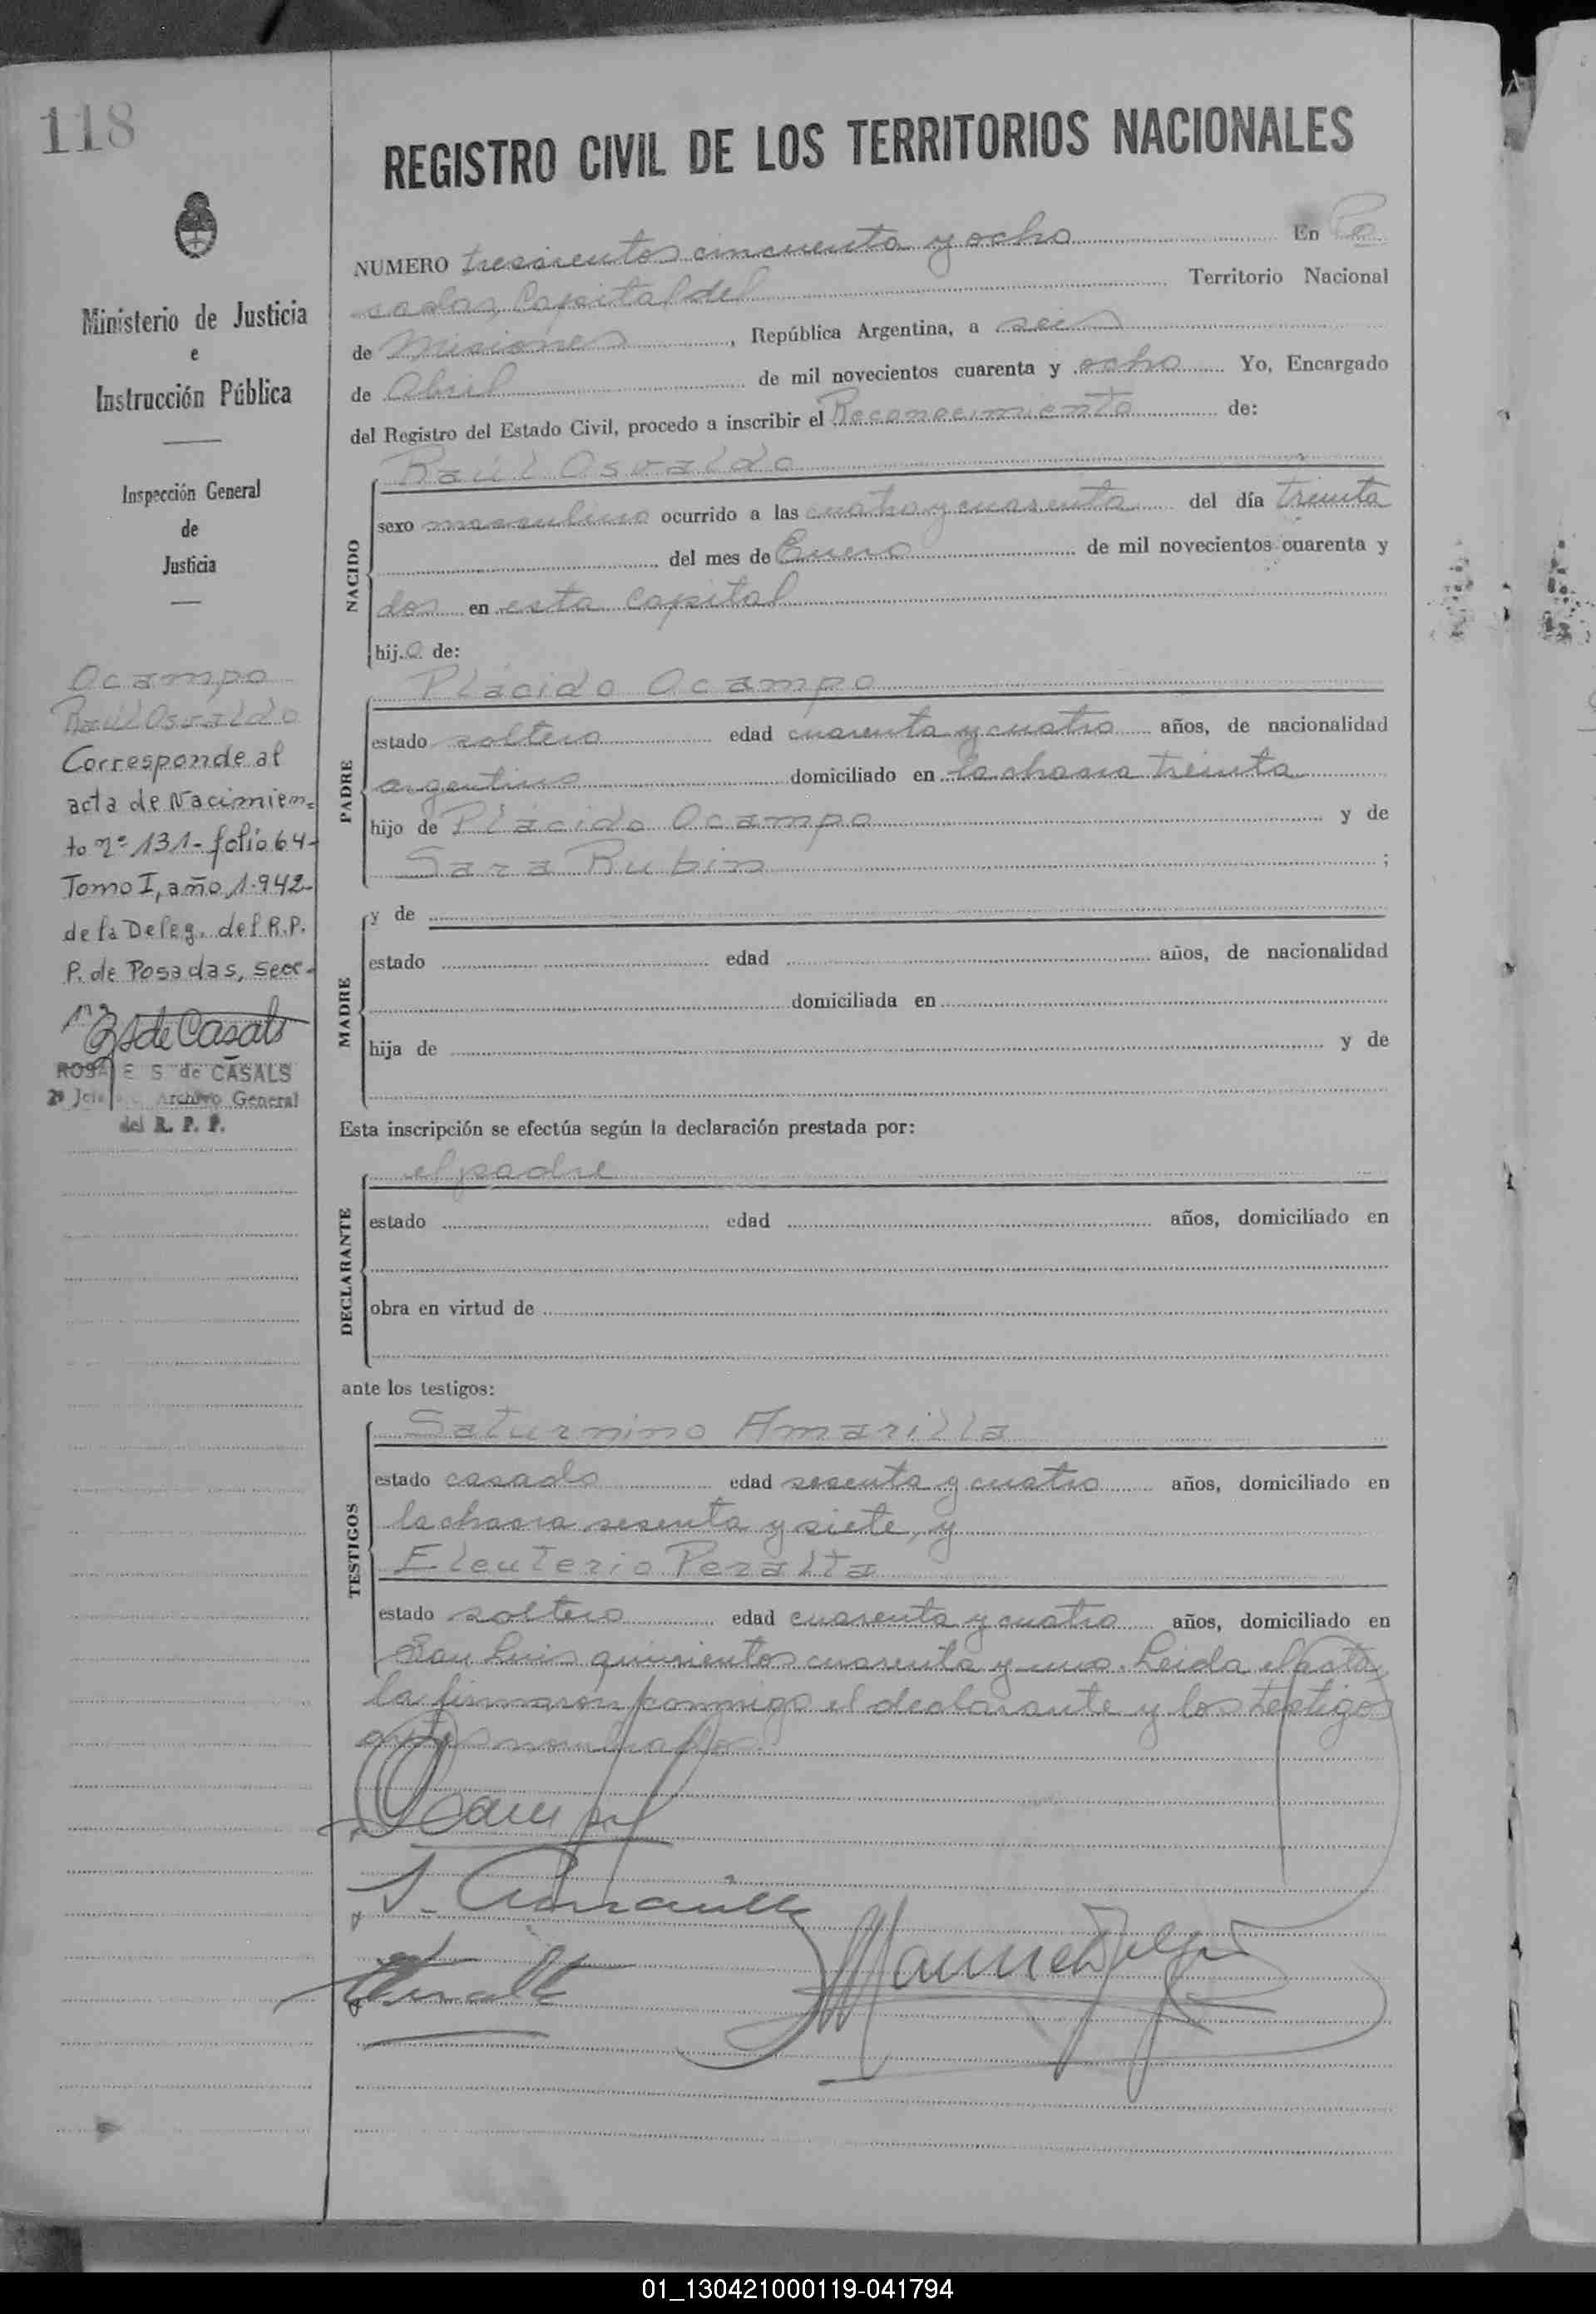 118
REGISTRO CIVIL DE LOS TERRITORIOS NACIONALES
NUMERO tresientos cincuenta y ocho En Po
sadas, Capital del Territorio Nacional
de Misiones, República Argentina, a seis
de Abril de mil novecientos cuarenta y ocho Yo, Encargado
del Registro del Estado Civil, procedo a inscribir el Reconocimiento de:
Raúl Osvaldo
NACIDO
sexo masculino ocurrido a las cuatro y cuarenta del día treinta
del mes de Enero de mil novecientos cuarenta y
dos en esta Capital
hij.o de:
Plácido Ocampo
PADRE
estado soltero edad cuarenta y cuatro años, de nacionalidad
argentino domiciliado en la chacra treinta
hijo de Plácido Ocampo y de
Sara Rubin ;
MADRE
y de
estado edad años, de nacionalidad
domiciliada en
hija de y de
Esta inscripción se efectúa según la declaración prestada por:
el padre
DECLARANTE
estado edad años, domiciliado en
obra en virtud de
ante los testigos:
Saturnino Amarilla
TESTIGOS
estado casado edad sesenta y cuatro años, domiciliado en
la chacra sesenta y siete, y
Eleuterio Peralta
estado soltero edad cuarenta y cuatro años, domiciliado en
San Luis quinientos cuarenta y uno. Leida el acta
la firmaron conmigo el declarante y los testigos
antes nombrados.
Ocampo
S. Amarilla
Peralta
Ministerio de Justicia
e
Instrucción Pública
Inspección General
de
Justicia
Ocampo
Raúl Osvaldo
Corresponde al
acta de Nacimien=
to nº 131- folio 64-
Tomo I, año 1.942-
de la Deleg. del R.P.
P. de Posadas, secc-
1ra
E S de Casals
ROSA E S de CASALS
Archivo General
del R. P. P.
01_130421000119-041794